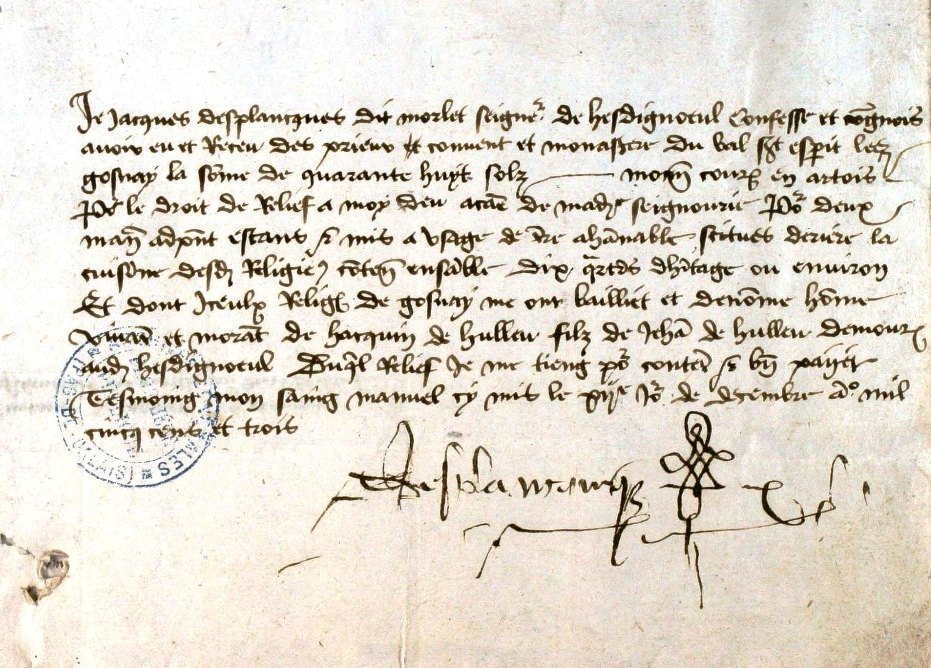 Je Jacques desplancques dit morlet seigner de hesdigneul Confesse et cognois
avoir eu et Receu des prieur et convent et monastere du val st esperit leez
gosnay la some de quarante huyt solz monn cour en artois
Por le droit de Relief a moy deu a cae de mad seignourie Por deux
man adpnt estans et mis a usage de tre ahanable scitues deriere la
cuisine desd Religie conten ensamble dix qrters dhitage ou environ
Et dont Iceulx Relig de gosnay me ont bailliet et denome home
vivant et morant de hacquin de hulleu filz de Jehan de hulleu demour
aud hesdigneul Duql Relief Je me tieng por content et bn payet
Tesmoing mon saing manuel cy mis le xije Jor de decembre ao mil
cincq cens et trois
Desplancques